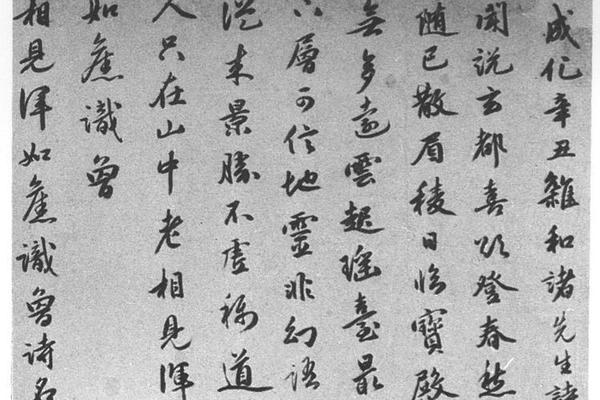 成化辛丑雜和諸先生詩
聞說玄都喜欲登春愁
隨已散眉稜日臨寶殿
無多遠雲起瑤臺最
上層可信地靈非幻語
從來景勝不虛稱道
人只在山中老相見渾
如舊識曾
相見渾如舊識曾詩名